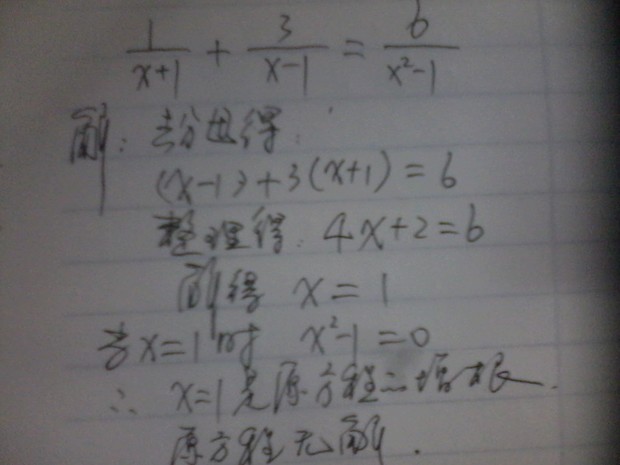 1/(x+1) + 3/(x-1) = 6/(x²-1)
解:去分母得:
(x-1)+3(x+1)=6
整理得:4x+2=6
解得 x=1
当x=1时 x²-1=0
∴ x=1是原方程的增根.
原方程无解.